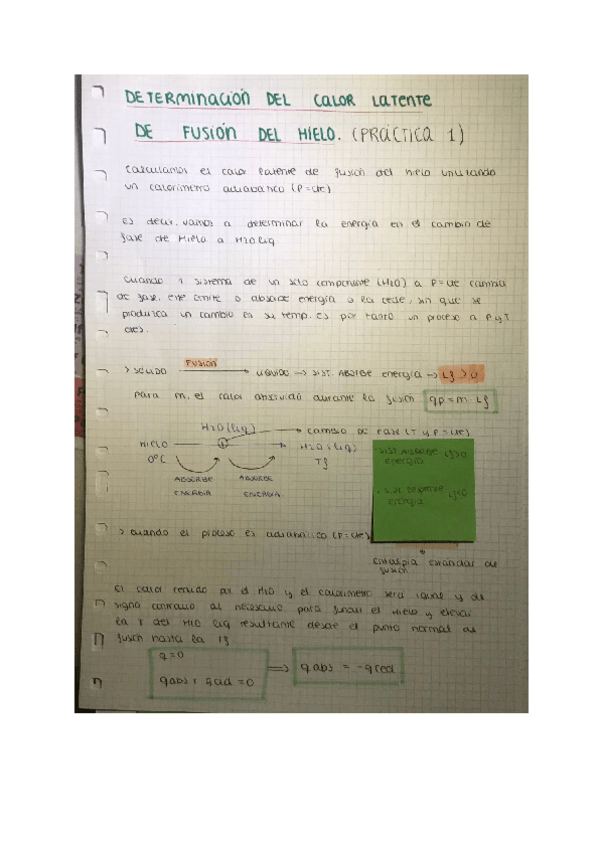 DETERMINACIÓN DEL CALOR LATENTE
DE FUSIÓN DEL HIELO. (PRÁCTICA 1)
Calculamos el calor latente de fusión del hielo utilizando
un calorímetro adiabático (P=cte)
es decir, vamos a determinar la energía en el cambio de
fase de Hielo a H2O liq
Cuando 1 sistema de un solo componente (H2O) a P=cte cambia
de fase, este emite o absorbe energía o la cede, sin que se
produzca un cambio en su temp. Es por tanto un proceso a P y T
ctes.
> SÓLIDO FUSIÓN LÍQUIDO → SIST. ABSORBE energía → Lf > 0
para m, el calor absorbido durante la fusión qp = m · Lf
H2O (liq) → cambio de fase (T y P = cte)
HIELO H2O (liq)
0ºC Tf
ABSORBE ABSORBE
ENERGÍA ENERGÍA
· SIST ABSORBE Lf>0
energía
· SIST DESPRENDE Lf<0
energía
> cuando el proceso es adiabático (P=cte)
Entalpía estándar de
fusión
El calor cedido por el H2O y el calorímetro será igual y de
signo contrario al necesario para fundir el hielo y elevar
la T del H2O liq resultante desde el punto normal de
fusión hasta la Tf
q=0
qabs + qced = 0 ⟹ qabs = -qced